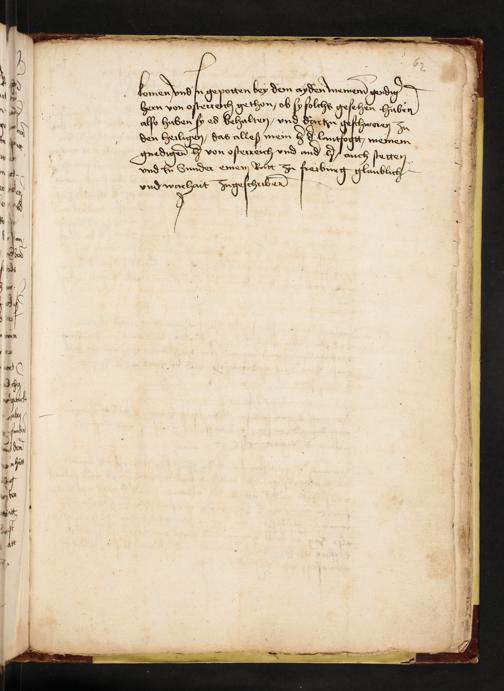 62
komen und in gepotten bey dem ayden meinem gnedigen
hern von osterreich gethon, ob sy solichs gesehen haben
also haben sy es behalten, und geschworen zu
den heiligen, das alles mein h d lantfogtt, meinem
gnedigen h von osterreich und auch stetten
und besunder einem Rått zu freiburg glaublich
und warhait zugeschriben